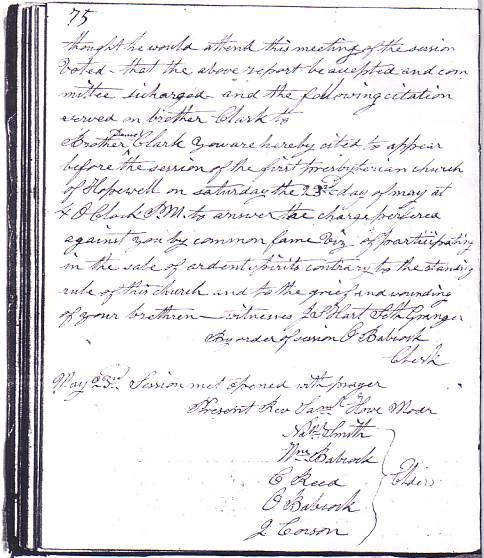 75
thought he would attend this meeting of the session
Voted that the above report be accepted and com
mittee discharged and the following citation
served on brother Clark to
Brother Clark You are hereby cited to appear
before the session of the first presbyterian church
of Hopewell on saturday the 23rd day of may at
4 O Clock P.M. to answer the charge
against you by common fame Viz of participating
in the sale of ardent spirits contrary to the standing
rule of this church and to the grief and wounding
of your brethren — witnesses Hart Seth Granger
By order of session O Babcock
Clerk
May 23rd Session met opened with prayer
Present Rev Saml Howe Modr
Nathl Smith
Wm Babcock
C Reed
O Babcock
J Corson
Elders